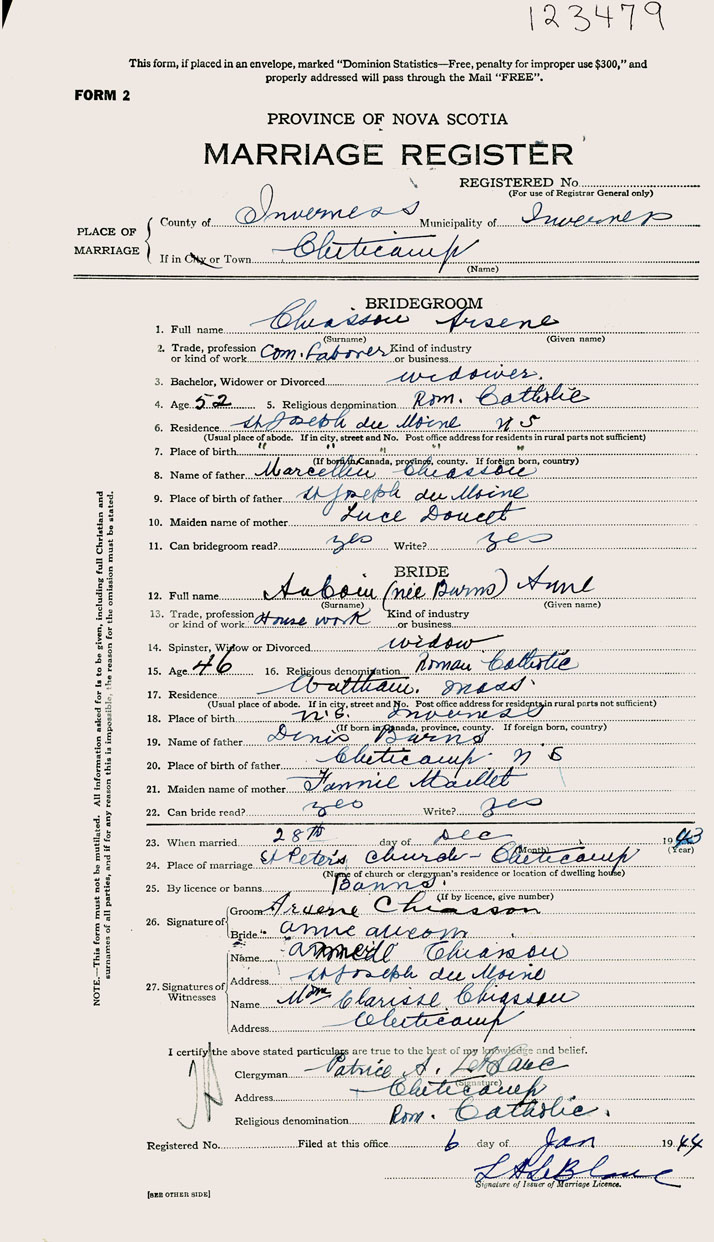 123479
This form, if placed in an envelope, marked “Dominion Statistics—Free, penalty for improper use $300,” and
properly addressed will pass through the Mail “FREE”.
FORM 2
PROVINCE OF NOVA SCOTIA
MARRIAGE REGISTER
REGISTERED No.
(For use of Registrar General only)
PLACE OF MARRIAGE
County of Inverness Municipality of Inverness
If in City or Town Cheticamp
(Name)
BRIDEGROOM
1. Full name Chiasson Arsene
(Surname) (Given name)
2. Trade, profession or kind of work Com. Laborer Kind of industry or business
3. Bachelor, Widower or Divorced widower.
4. Age 52 5. Religious denomination Rom. Catholic
6. Residence St Joseph du Moine N S
(Usual place of abode. If in city, street and No. Post office address for residents in rural parts not sufficient)
7. Place of birth " " " " "
(If born in Canada, province, county. If foreign born, country)
8. Name of father Marcellin Chiasson
9. Place of birth of father St Joseph du Moine
10. Maiden name of mother Luce Doucet
11. Can bridegroom read? yes Write? yes
BRIDE
12. Full name AuCoin (née Burns) Anne
(Surname) (Given name)
13. Trade, profession or kind of work House work Kind of industry or business
14. Spinster, Widow or Divorced widow
15. Age 46 16. Religious denomination Roman Catholic
17. Residence Waltham. Mass.
(Usual place of abode. If in city, street and No. Post office address for residents in rural parts not sufficient)
18. Place of birth N.S. Inverness
(If born in Canada, province, county. If foreign born, country)
19. Name of father Denis Burns
20. Place of birth of father Cheticamp N S
21. Maiden name of mother Fannie Maillet
22. Can bride read? yes Write? yes
23. When married 28th day of Dec 1943
(Month) (Year)
24. Place of marriage St Peter's Church - Cheticamp
(Name of church or clergyman's residence or location of dwelling house)
25. By licence or banns Banns.
(If by licence, give number)
26. Signature of
Groom Arsene Chiasson
Bride " anne aucoin
27. Signatures of Witnesses
Name Chiasson
Address St Joseph du Moine
Name Mme Clarisse Chiasson
Address Cheticamp
I certify the above stated particulars are true to the best of my knowledge and belief.
Clergyman Patrice A. LeBlanc
(Signature)
Address Cheticamp
Religious denomination Rom. Catholic.
Registered No. Filed at this office 6 day of Jan 1944
L A LeBlanc
Signature of Issuer of Marriage Licence.
[SEE OTHER SIDE]
NOTE.—This form must not be mutilated. All information asked for is to be given, including full Christian and
surnames of all parties, and if for any reason this is impossible, the reason for the omission must be stated.